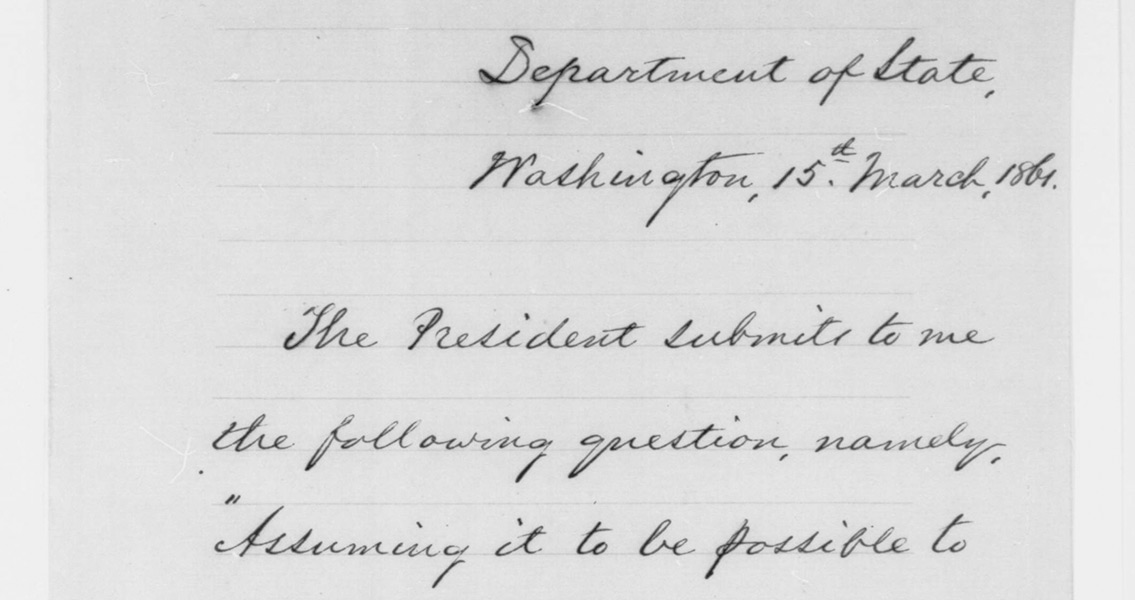 Department of State,
Washington, 15th March, 1861.
The President submits to me
the following question, namely,
"Assuming it to be possible to